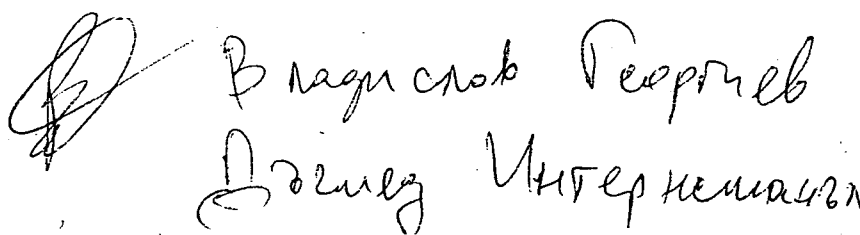 Владислав Георгиев
Дъглед Интернешанъл